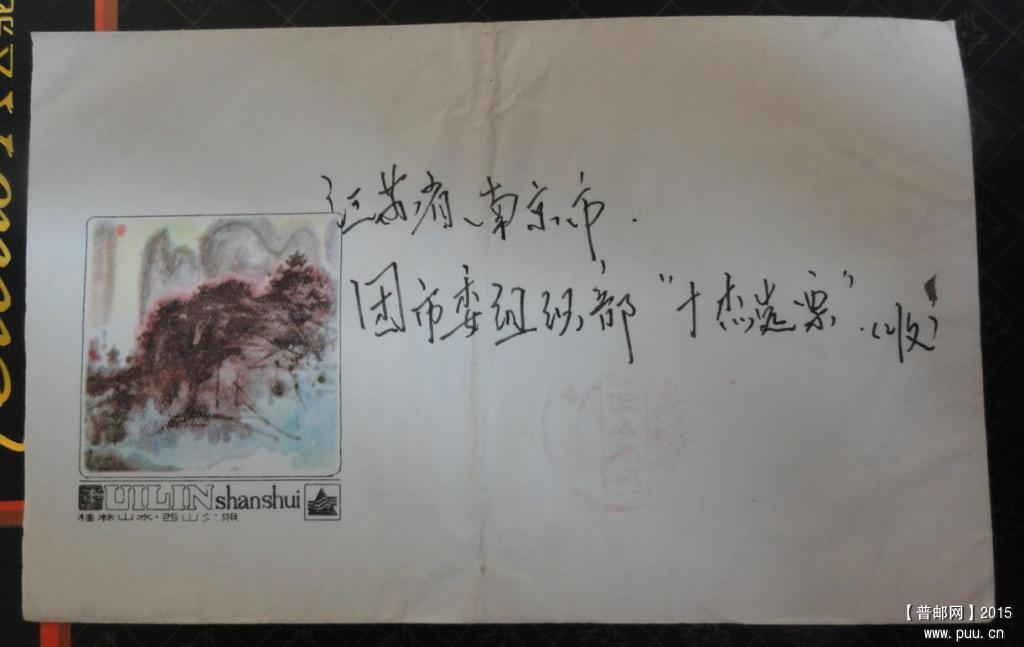 江苏省、南京市.
团市委组织部“十杰选票”.(收)
GUILIN shanshui
桂林山水·西山夕照
【普邮网】2015
www.puu.cn